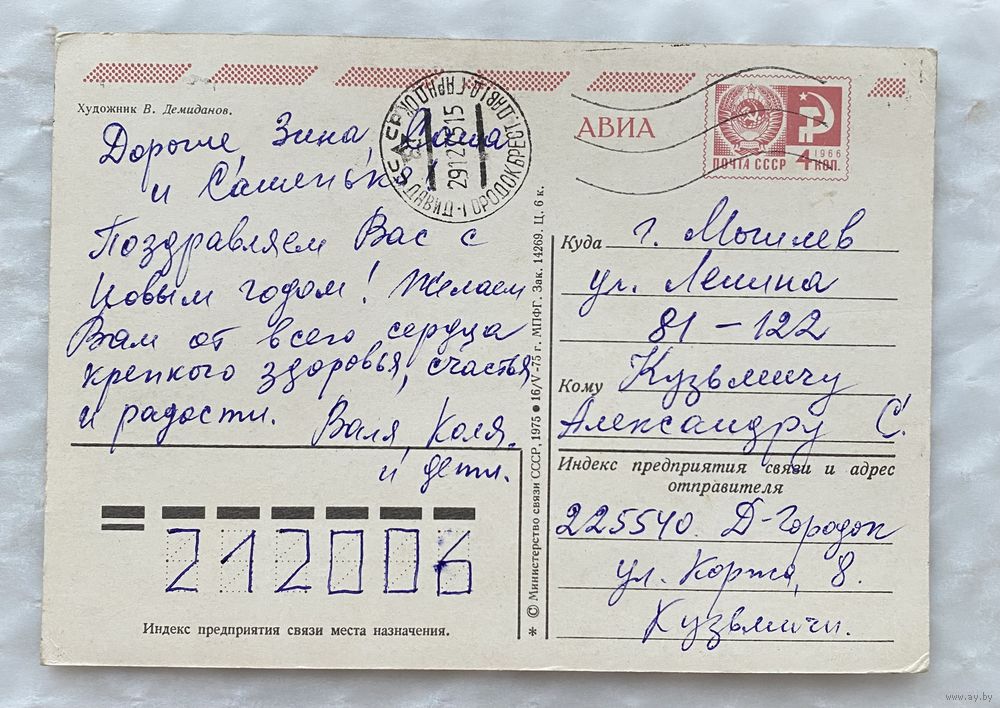 Художник В. Демиданов.
Дорогие Зина, Саша
и Сашенька
Поздравляем Вас с
Новым годом! Желаем
Вам от всего сердца
крепкого здоровья, счастья
и радости. Валя, Коля
и дети.
212006
Индекс предприятия связи места назначения.
* © Министерство связи СССР, 1975 ● 16/V-75 г. МПФГ. Зак. 14269. Ц. 6 к.
ДАВИД-ГОРОДОК БРЕСТ.
291275 15
АВИА
ПОЧТА СССР
1966
4 КОП.
Куда г. Могилев
ул. Ленина
81-122
Кому Кузьмичу
Александру С.
Индекс предприятия связи и адрес
отправителя
225540. Д-Городок
ул. Коржа, 8.
Кузьмичи.
www.ay.by